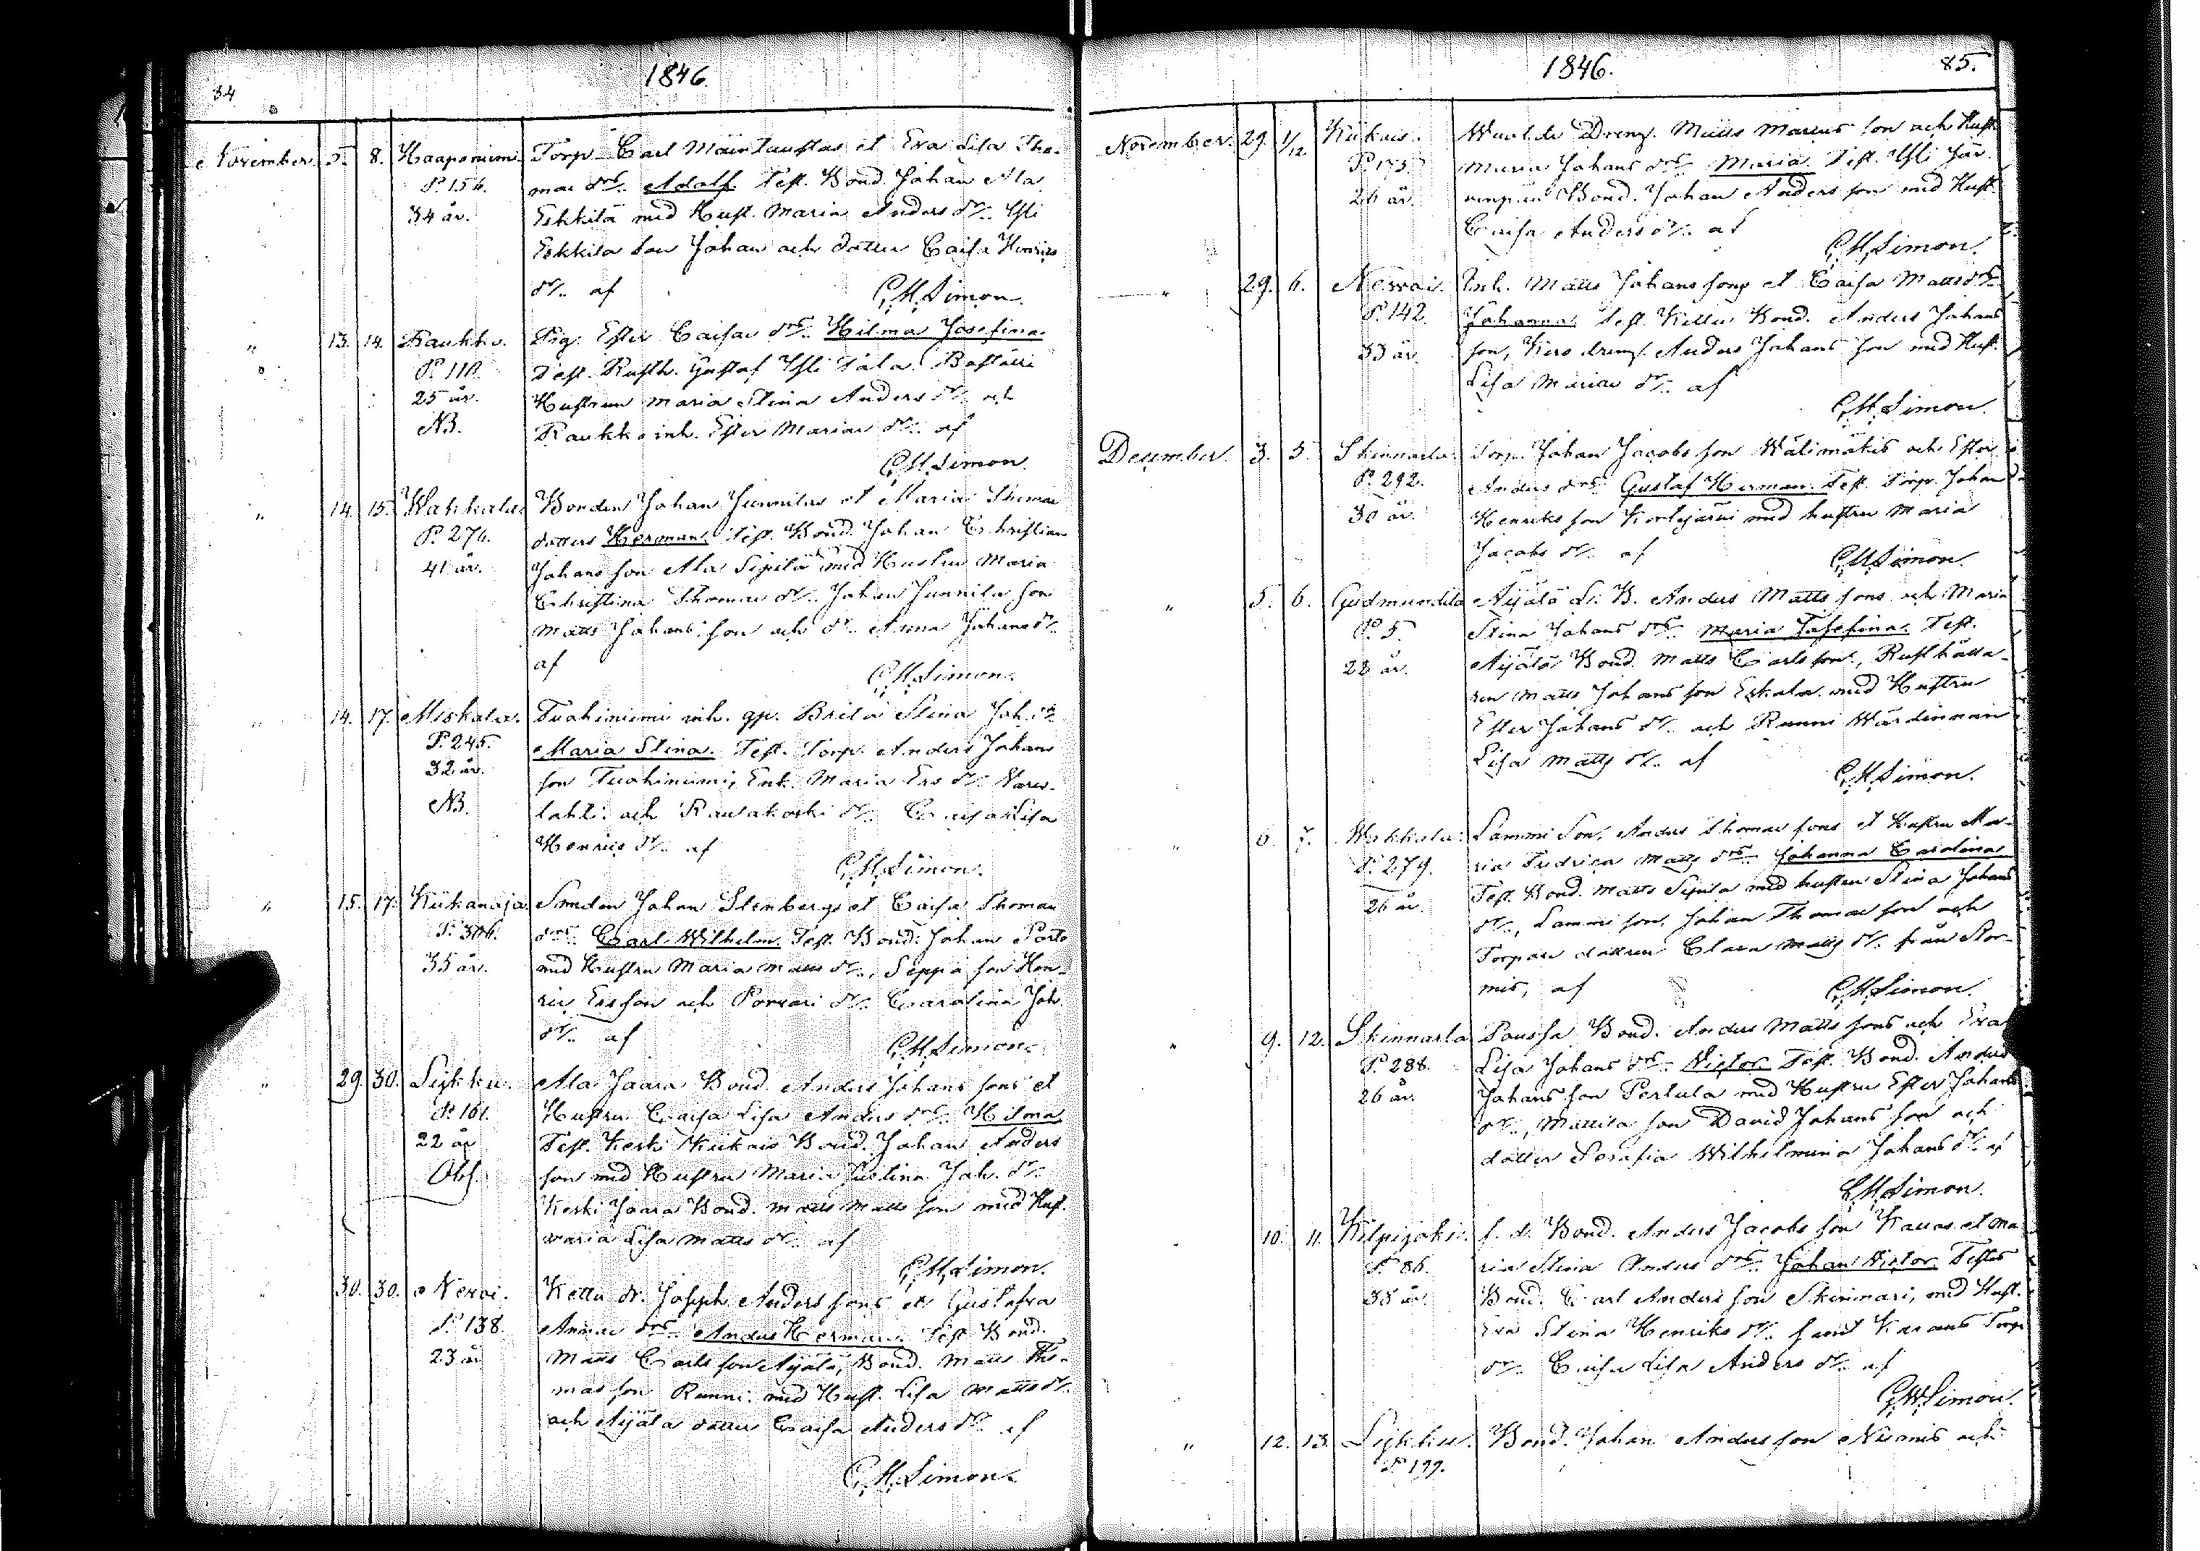 84
1846.
November. 5. 8. Haaponiemi. Torp. Carl Mäintaustas et Eva Lisa Tho-
P. 156. mae drs. Adolf. Test. Bond. Johan Ala
34 år. Eskkilä med Hust. Maria Anders dr. Yli
Eskkila son Johan och dotter Caisa Henrics
dr. af
C.M. Simon.
" 13. 14. Raukko. Pig. Ester Caisae drs. Hilma Josefina.
P. 110. Test. Rusth. Gustaf Yli
25 år. Hustrun Maria Stina Anders dr. och
NB. Raukko inh. Ester Mariae dr. af
C.M. Simon.
" 14. 15. Wahkala. Bonden Johan Junnilas et Maria Thomae
P. 276. dotters Herman. Test. Bond. Johan Christian
41 år. Johans son Ala Sipilä med Hustru Maria
Christina Thomae dr. Johan Junnila son
Matts Johans son och dr. Anna Johans dr.
af
C.M. Simon.
14. 17. Miskala. Tuohiniemi inh. gp. Brita Stina Joh. drs
P. 245. Maria Stina. Test. Torp. Anders Johans
32 år. son Tuohiniemi, Enk. Maria Ers dr.
NB. lahti och Rautakoski dr. Caisa Lisa
Henrics dr. af
C.M. Simon.
" 15. 17. Kiikanoja. Smeden Johan Stenbergs et Caisa Thomae
P. 306. drs. Carl Wilhelm. Test. Bond. Johan
35 år. med Hustru Maria Matts dr., Seppä son Hen-
ric Ersson och Porvari dr. Carolina Joh.
dr. af
C.M. Simon.
" 29. 30. Liykku. Ala Jaara Bond. Anders Johans sons et
P. 161. Hustru Caisa Lisa Anders drs. Hilma
22 år Test. Keski Kiikais Bond. Johan Anders
Obs. son med Hustru Maria Justina Joh. dr.
Keski Jaara Bond. Matts Matts son med Hust.
Maria Lisa Matts dr. af
C.M. Simon.
" 30. 30. Nervoi. Kettu dr. Joseph Anders sons et Gustafva
P. 138. Annae drs. Anders Herman. Test. Bond.
23 år Matts Carls son Äijälä, Bond. Matts Tho-
mas son Runni med Hust. Lisa Matts dr.
och Äijälä dotter Caisa Anders dr. af
C.M. Simon.
1846.
85.
November. 29. 1/12 Kiikais. Dreng. Matts Marcus son och Hust.
P. 173. Maria Johans drs. Maria. Test. Yli Jär-
26 år. Bond. Johan Anders son med Hust.
Caisa Anders dr. af
C.M. Simon.
" 29. 6. Nervoi. Inh. Matts Johans sons et Caisa Matts drs.
P. 142. Johanna. Test. Kettu Bond. Anders Johans
33 år. son, dreng. Anders Johans son med Hust.
Lisa Mariae dr. af
C.M. Simon.
December. 3. 5. Skinnarla. Torp. Johan Jacobs son Wälimäkis och Ester
P. 292. Anders drs. Gustaf Herman. Test. Torp. Johan
30 år. Henriks son Kortejärvi med hustru Maria
Jacobs dr. af
C.M. Simon.
" 5. 6. Gudmundila Äijälä Bond. Anders Matts sons och Maria
P. 5. Stina Johans drs. Maria Josefina. Test.
22 år. Äijälä Bond. Matts Carls son, Rusthålla-
ren Matts Johans son Eskala med Hustru
Ester Johans dr. och Runni Wärdinnan
Lisa Matts dr. af
C.M. Simon.
" 6. 7. Wahkala. Lammi Son. Anders Thomae sons et Hustru Ma-
P. 279. ria Fredrica Matts drs. Johanna Carolina
26 år. Test. Bond. Matts Sipila med hustru Stina Johans
dr., Lammi son. Johan Thomae son och
Torpare dottren Clara Matts dr. från Stor-
mis, af
C.M. Simon.
" 9. 12. Skinnarla Poussa Bond. Anders Matts sons och Eva
P. 288. Lisa Johans drs. Victor. Test. Bond. Anders
26 år. Johans son Pertula med Hustru Ester Johans
dr., Mattila son David Johans son och
dotter Serafia Wilhelmina Johans dr. af
C.M. Simon.
10. 11. Kilpijoki. f. d. Bond. Anders Jacobs son Kauas et Ma-
P. 86. ria Stina Anders drs. Johan Victor. Testes
35 år. Bond. Carl Anders son Skinnari, med Hust.
Eva Stina Henriks dr. samt Torp.
dr. Caisa Lisa Anders dr. af
C.M. Simon.
" 12. 13. Liykku. Bond. Johan Anders son Niemis och
P. 199.